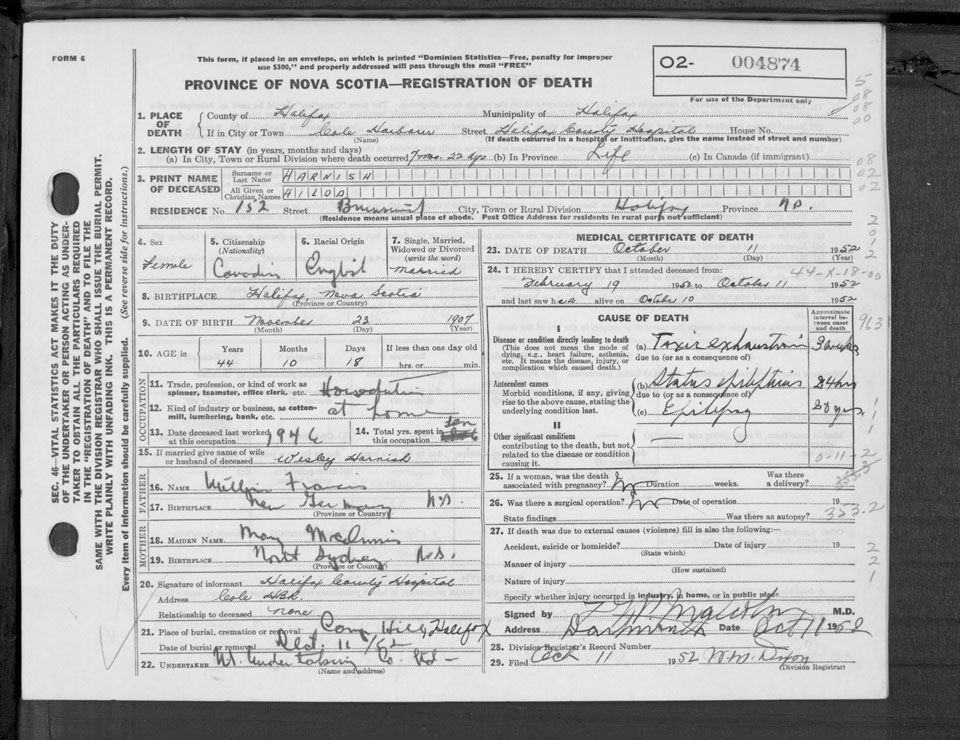 FORM 6
This form, if placed in an envelope, on which is printed "Dominion Statistics—Free, penalty for improper
use $300," and properly addressed will pass through the mail "FREE"
PROVINCE OF NOVA SCOTIA—REGISTRATION OF DEATH
O2- 004874
For use of the Department only
SEC. 46—VITAL STATISTICS ACT MAKES IT THE DUTY
OF THE UNDERTAKER OR PERSON ACTING AS UNDER-
TAKER TO OBTAIN ALL THE PARTICULARS REQUIRED
IN THE "REGISTRATION OF DEATH" AND TO FILE THE
SAME WITH THE DIVISION REGISTRAR WHO SHALL ISSUE THE BURIAL PERMIT.
WRITE PLAINLY WITH UNFADING INK. THIS IS A PERMANENT RECORD.
Every item of Information should be carefully supplied. (See reverse side for instructions.)
1. PLACE OF DEATH County of Halifax Municipality of Halifax
If in City or Town Cole Harbour Street Halifax County Hospital House No.
(Name) (If death occurred in a hospital or institution, give the name instead of street and number)
2. LENGTH OF STAY (in years, months and days)
(a) In City, Town or Rural Division where death occurred 7 mos. 22 dys (b) In Province Life (c) In Canada (if immigrant)
3. PRINT NAME OF DECEASED Surname or Last Name HARNISH
All Given or Christian Names HILDA
RESIDENCE No. 152 Street Brunswick City, Town or Rural Division Halifax Province N.S.
(Residence means usual place of abode. Post Office Address for residents in rural parts not sufficient)
4. Sex Female
5. Citizenship (Nationality) Canadian
6. Racial Origin English
7. Single, Married, Widowed or Divorced (write the word) Married
8. BIRTHPLACE Halifax Nova Scotia
(Province or Country)
9. DATE OF BIRTH November 23 1907
(Month) (Day) (Year)
10. AGE in Years Months Days If less than one day old
44 10 18 hrs. or min.
OCCUPATION
11. Trade, profession, or kind of work as
spinner, teamster, office clerk, etc.
12. Kind of industry or business, as cotton-
mill, lumbering, bank, etc. at home
13. Date deceased last worked at this occupation 1946
14. Total yrs. spent in this occupation
15. If married give name of wife
or husband of deceased Wesley Harnish
FATHER
16. NAME Francis
17. BIRTHPLACE New Germany N.S.
(Province or Country)
MOTHER
18. MAIDEN NAME May
19. BIRTHPLACE North Sydney N.S.
(Province or Country)
20. Signature of informant Halifax County Hospital
Address Cole HBR.
Relationship to deceased none
21. Place of burial, cremation or removal Camp Hill, Halifax
Date of burial or removal
22. UNDERTAKER Undertaking Co. Ltd
(Name and address)
MEDICAL CERTIFICATE OF DEATH
23. DATE OF DEATH October 11 1952
(Month) (Day) (Year)
24. I HEREBY CERTIFY that I attended deceased from: 44-X-18-00
February 19 1952 to October 11 1952
and last saw her alive on October 10 1952
CAUSE OF DEATH
Approximate interval between onset and death
I
Disease or condition directly leading to death (a) Toxic exhaustion 3 weeks
(This does not mean the mode of dying, e.g., heart failure, asthenia, etc. It means the disease, injury, or complication which caused death.)
due to (or as a consequence of)
Antecedent causes (b) Status epilepticus 24 hrs
Morbid conditions, if any, giving rise to the above cause, stating the underlying condition last.
due to (or as a consequence of)
(c) Epilepsy
II
Other significant conditions
contributing to the death, but not
related to the disease or condition
causing it.
963
0-11-2
25. If a woman, was the death
associated with pregnancy? No Duration weeks. Was there a delivery?
26. Was there a surgical operation? No Date of operation 19
State findings Was there an autopsy? 353-2
27. If death was due to external causes (violence) fill in also the following:—
Accident, suicide or homicide? Date of injury 19
(State which)
Manner of injury
(How sustained)
Nature of injury
Specify whether injury occurred in industry, in home, or in public place
Signed by M.D.
Address Dartmouth Date Oct 11 1952
28. Division Registrar's Record Number
29. Filed Oct 11 1952 W.M. Dixon
(Division Registrar)